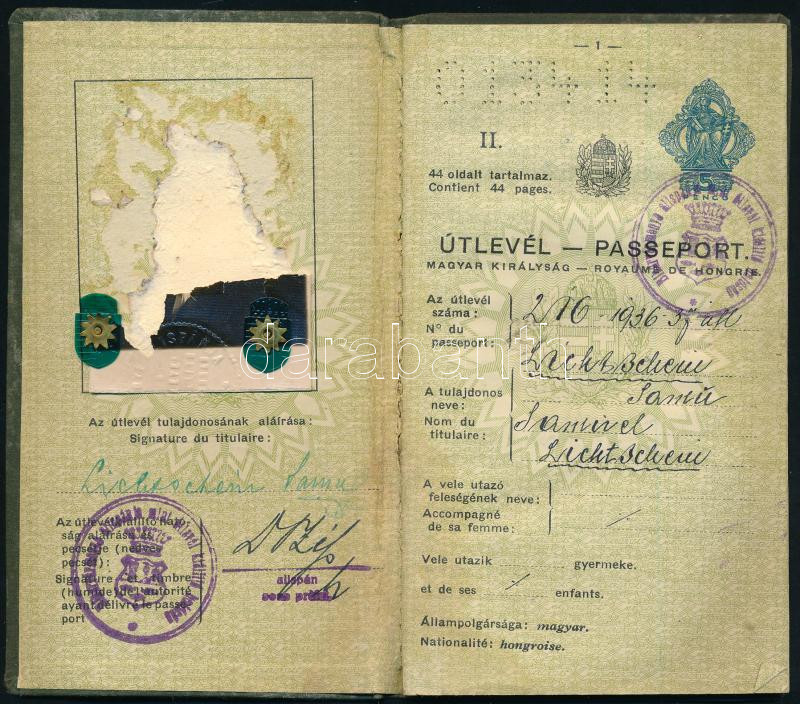 Az útlevél tulajdonosának aláírása:
Signature du titulaire:
Lichtschein Samu
Az útlevélkiállító ható-
ság aláírása és
pecsétje (nedves
pecsét):
Signature et timbre
(humide) de l'autorité
ayant délivré le passe-
port
alispán
— 1 —
013414
II.
44 oldalt tartalmaz.
Contient 44 pages.
5
PENGŐ
ÚTLEVÉL — PASSEPORT.
MAGYAR KIRÁLYSÁG — ROYAUME DE HONGRIE.
Az útlevél
száma:
N° du
passeport:
Lichtschein
Samu
A tulajdonos
neve:
Nom du
titulaire:
Samuel
Lichtschein
A vele utazó
feleségének neve:
Accompagné
de sa femme:
Vele utazik gyermeke.
et de ses enfants.
Állampolgársága: magyar.
Nationalité: hongroise.
darabanth